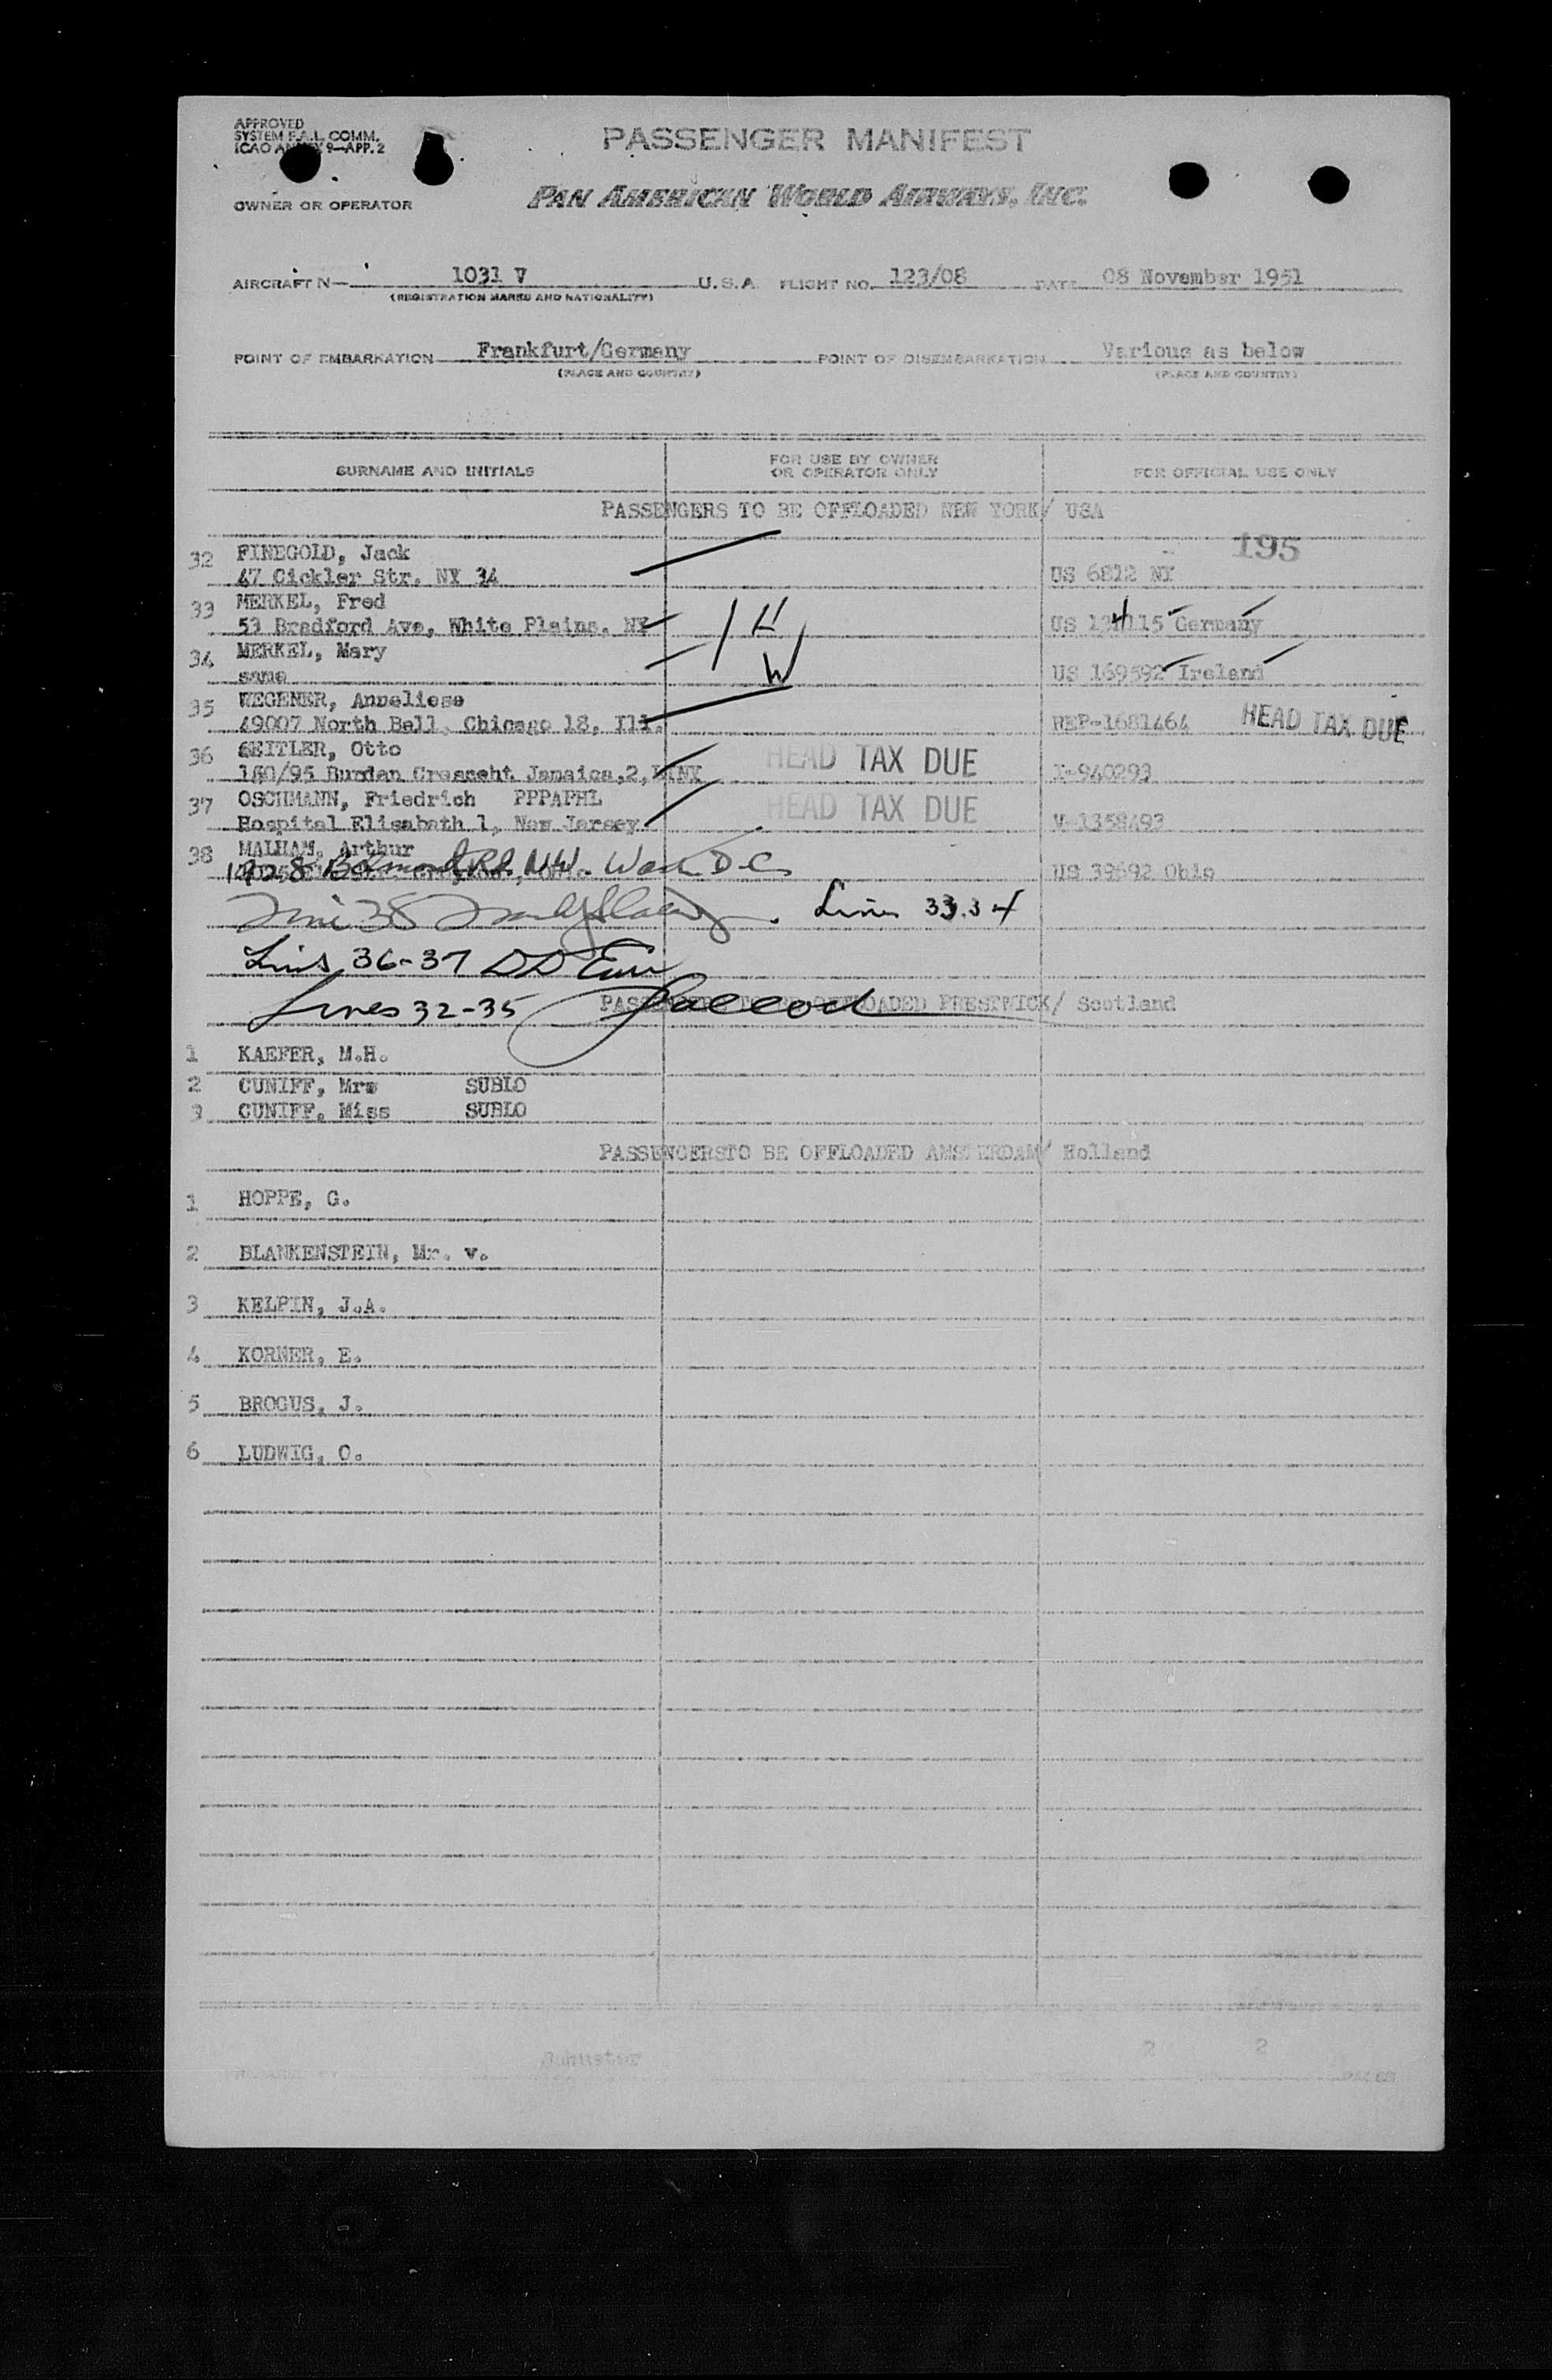 APPROVED
SYSTEM F.A.L. COMM.
ICAO ANNEX 9—APP. 2
PASSENGER MANIFEST
OWNER OR OPERATOR
PAN AMERICAN WORLD AIRWAYS, INC.
AIRCRAFT N— 1031 V U.S.A. FLIGHT NO. 123/08 DATE 08 November 1951
(REGISTRATION MARKS AND NATIONALITY)
POINT OF EMBARKATION Frankfurt/Germany POINT OF DISEMBARKATION Various as below
(PLACE AND COUNTRY) (PLACE AND COUNTRY)
SURNAME AND INITIALS FOR USE BY OWNER OR OPERATOR ONLY FOR OFFICIAL USE ONLY
PASSENGERS TO BE OFFLOADED NEW YORK/ USA
195
32 FINEGOLD, Jack
47 Cickler Str. NY 34 US 6812 NY
33 MERKEL, Fred
53 Bradford Ave, White Plains, NY H US 134115 Germany
34 MERKEL, Mary
same W US 169592 Ireland
35 WEGENER, Anneliese
49007 North Bell, Chicago 18, Ill. REP-1681464 HEAD TAX DUE
36 SEITLER, Otto HEAD TAX DUE
180/95 Burdan Cresceht Jamaica,2,LINY I-940293
37 OSCHMANN, Friedrich PPPAPHL HEAD TAX DUE
Hospital Elisabath 1, New Jarsey V-1358493
38 MALHAM, Arthur
1928 Belmont Rd. N.W. Wash D.C. US 39692 Ohio
Line 38 Lines 33.34
Lines 36-37
Lines 32-35
PASSENGERS TO BE OFFLOADED PRESTWICK/ Scotland
1 KAEFER, M.H.
2 CUNIFF, Mrs SUBLO
3 CUNIFF, Miss SUBLO
PASSENGERSTO BE OFFLOADED AMSTERDAM/ Holland
1 HOPPE, G.
2 BLANKENSTEIN, Mr. v.
3 KELPIN, J.A.
4 KORNER, E.
5 BROGUS, J.
6 LUDWIG, O.
2 2
PAGES